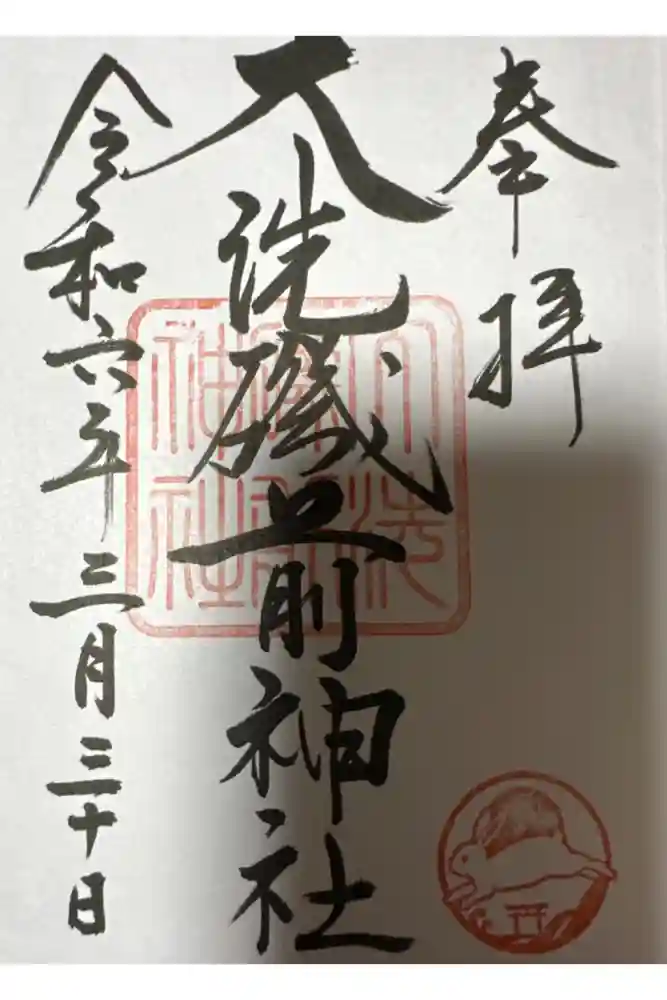 奉拝
大洗磯前神社
大洗磯前神社
令和六年三月三十日